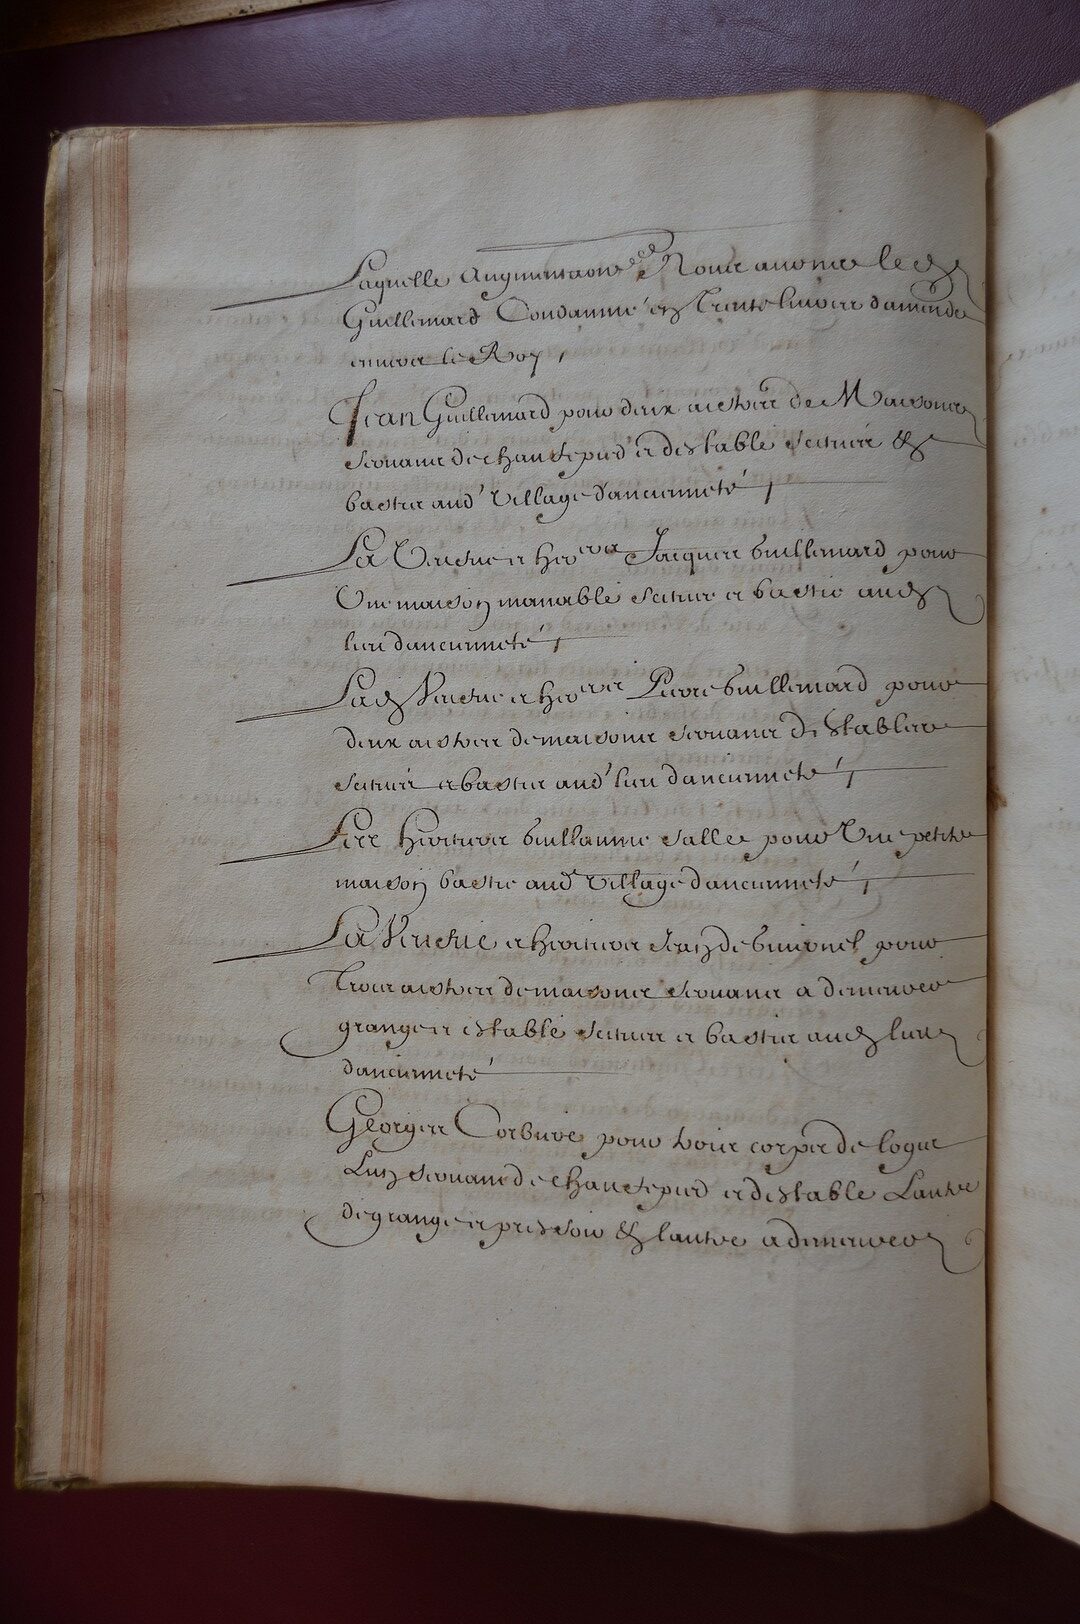 Laquelle augmentaõn Nous auons led
Guillemard Condamné en Trente liures d'amende
enuers le Roy,
Jean Guillemard pour deux aistres de Maisons
seruans de chaufepied et d'estable scitués &
bastis aud village d'ancienneté,
La Veufue et hers Jacques Guillemard pour
Vne maison manable scituee et bastie aud
lieu d'ancienneté,
Lad Veufue et hers Pierre Guillemard pour
deux aistres de maisons seruans d'estables
scitués et bastis aud lieu d'ancienneté,
Les heritiers Guillaume Sallé pour Vne petite
maison bastie aud village d'ancienneté,
La Veufue et heritiers Jean de pour
Trois aistres de maisons seruans a demeurer
grange et estable scitués et bastis aud lieu
d'ancienneté
Georges pour trois corps de logis
L'un seruant de chaufepied et d'estable L'autre
de grange et pressoir & l'autre a demeurer